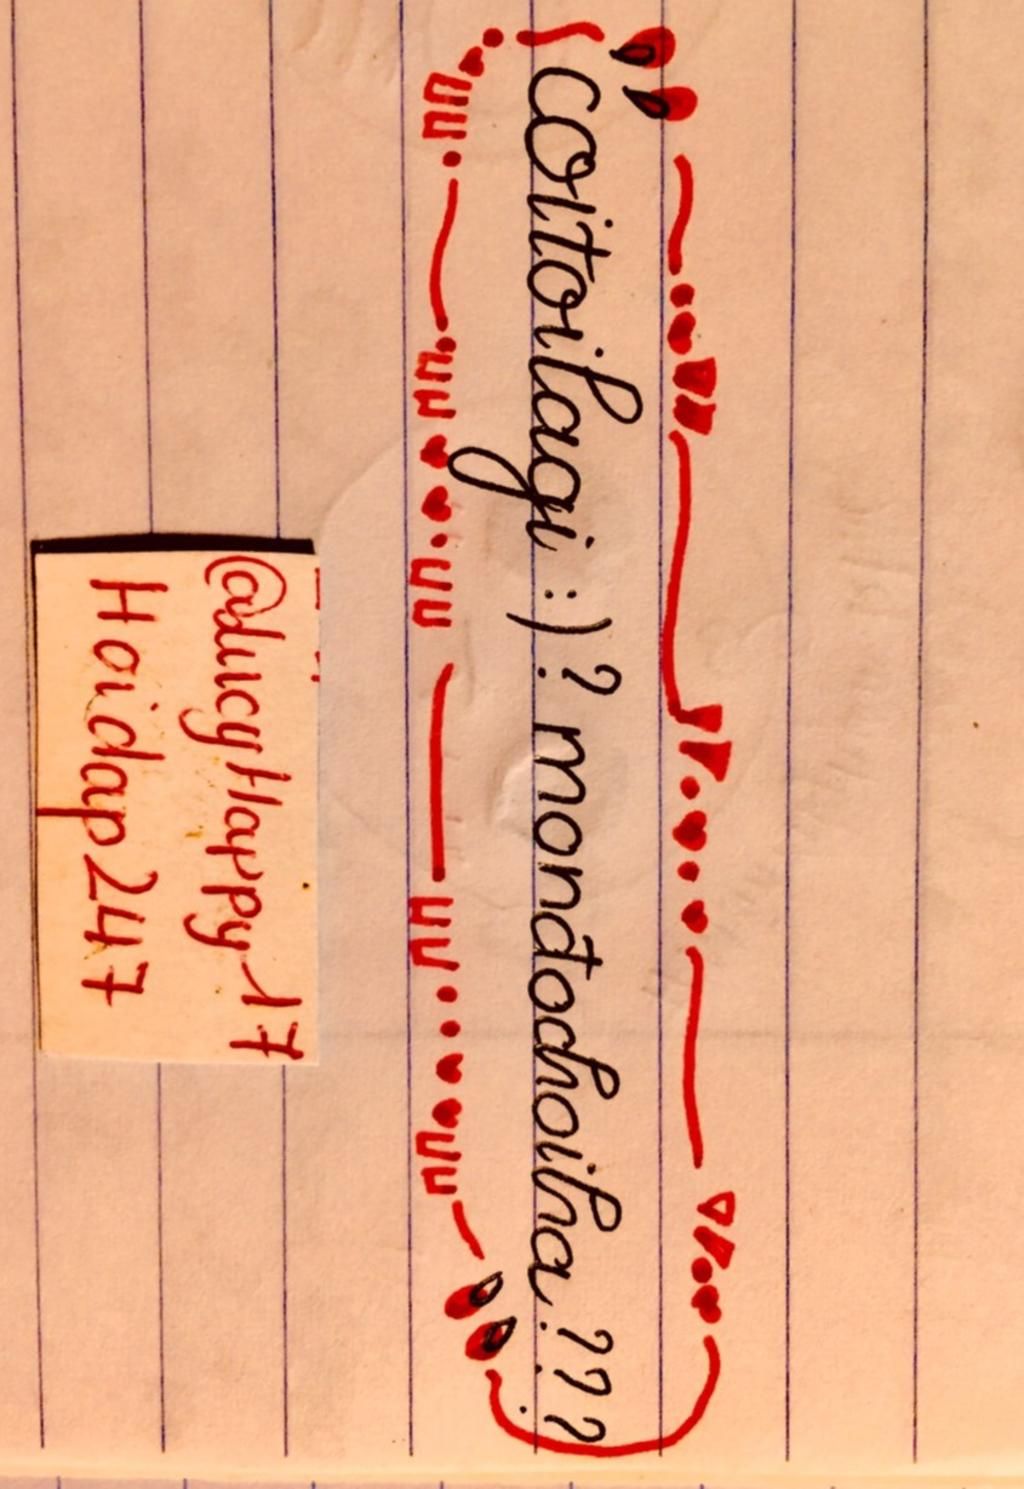 coitoilagi :)? mondochoiha???
@ducyHappy17
Hoidap247